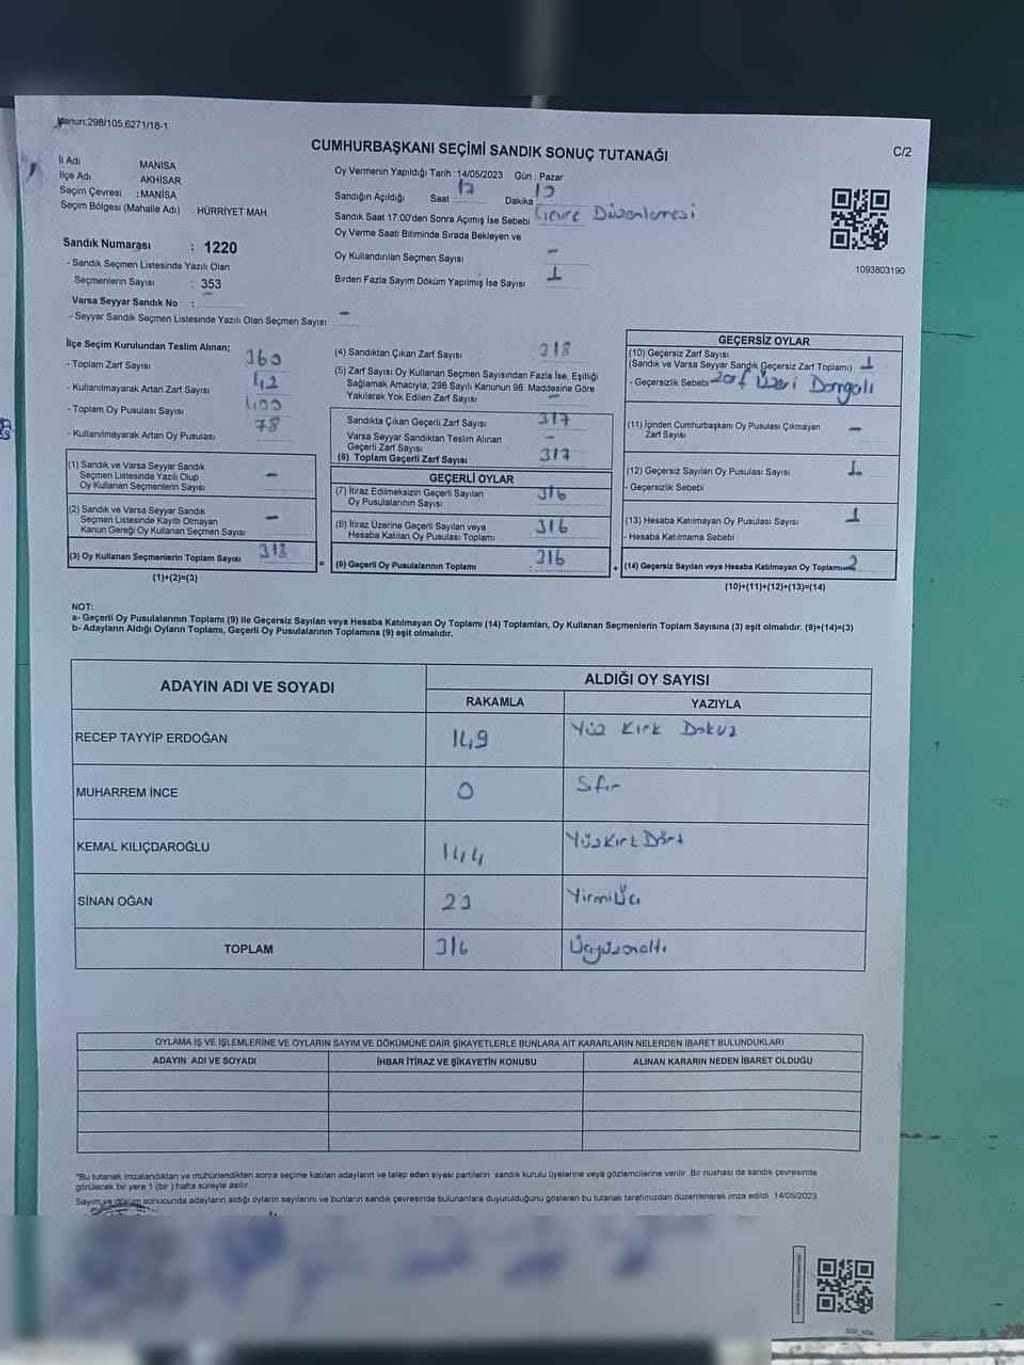 Kanun:298/105,6271/18-1
C/2
CUMHURBAŞKANI SEÇİMİ SANDIK SONUÇ TUTANAĞI
İl Adı MANİSA
İlçe Adı AKHİSAR
Seçim Çevresi :MANİSA
Seçim Bölgesi (Mahalle Adı) HÜRRİYET MAH
Sandık Numarası : 1220
- Sandık Seçmen Listesinde Yazılı Olan
Seçmenlerin Sayısı : 353
Varsa Seyyar Sandık No :
- Seyyar Sandık Seçmen Listesinde Yazılı Olan Seçmen Sayısı -
Oy Vermenin Yapıldığı Tarih :14/05/2023 Gün : Pazar
Sandığın Açıldığı Saat 17 Dakika
Sandık Saat 17:00'den Sonra Açımış İse Sebebi Çevre Düzenlemesi
Oy Verme Saati Bitiminde Sırada Bekleyen ve
Oy Kullandırılan Seçmen Sayısı -
Birden Fazla Sayım Döküm Yapılmış İse Sayısı 1
1093803190
İlçe Seçim Kurulundan Teslim Alınan;
- Toplam Zarf Sayısı 360
- Kullanılmayarak Artan Zarf Sayısı 42
- Toplam Oy Pusulası Sayısı
- Kullanılmayarak Artan Oy Pusulası 78
(1) Sandık ve Varsa Seyyar Sandık
Seçmen Listesinde Yazılı Olup
Oy Kullanan Seçmenlerin Sayısı -
(2) Sandık ve Varsa Seyyar Sandık
Seçmen Listesinde Kayıtlı Olmayan
Kanun Gereği Oy Kullanan Seçmen Sayısı -
(3) Oy Kullanan Seçmenlerin Toplam Sayısı 318
(1)+(2)=(3)
(4) Sandıktan Çıkan Zarf Sayısı 318
(5) Zarf Sayısı Oy Kullanan Seçmen Sayısından Fazla İse, Eşitliği
Sağlamak Amacıyla; 298 Sayılı Kanunun 98. Maddesine Göre
Yakılarak Yok Edilen Zarf Sayısı -
Sandıkta Çıkan Geçerli Zarf Sayısı 317
Varsa Seyyar Sandıktan Teslim Alınan
Geçerli Zarf Sayısı -
(6) Toplam Geçerli Zarf Sayısı 317
GEÇERLİ OYLAR
(7) İtiraz Edilmeksizin Geçerli Sayılan
Oy Pusulalarının Sayısı 316
(8) İtiraz Üzerine Geçerli Sayılan veya
Hesaba Katılan Oy Pusulası Toplamı 316
= (9) Geçerli Oy Pusulalarının Toplamı : 316
GEÇERSİZ OYLAR
(10) Geçersiz Zarf Sayısı
(Sandık ve Varsa Seyyar Sandık Geçersiz Zarf Toplamı) 1
- Geçersizlik Sebebi Zarf Üzeri Damgalı
(11) İçinden Cumhurbaşkanı Oy Pusulası Çıkmayan
Zarf Sayısı -
(12) Geçersiz Sayılan Oy Pusulası Sayısı 1
- Geçersizlik Sebebi
(13) Hesaba Katılmayan Oy Pusulası Sayısı 1
- Hesaba Katılmama Sebebi
+ (14) Geçersiz Sayılan veya Hesaba Katılmayan Oy Toplamı 2
(10)+(11)+(12)+(13)=(14)
NOT:
a- Geçerli Oy Pusulalarının Toplamı (9) ile Geçersiz Sayılan veya Hesaba Katılmayan Oy Toplamı (14) Toplamları, Oy Kullanan Seçmenlerin Toplam Sayısına (3) eşit olmalıdır. (9)+(14)=(3)
b- Adayların Aldığı Oyların Toplamı, Geçerli Oy Pusulalarının Toplamına (9) eşit olmalıdır.
ADAYIN ADI VE SOYADI
ALDIĞI OY SAYISI
RAKAMLA YAZIYLA
RECEP TAYYİP ERDOĞAN 149 Yüz Kırk Dokuz
MUHARREM İNCE 0 Sıfır
KEMAL KILIÇDAROĞLU 144 YüzKırkDört
SİNAN OĞAN 23 YirmiÜç
TOPLAM 316 Üçyüzonaltı
OYLAMA İŞ VE İŞLEMLERİNE VE OYLARIN SAYIM VE DÖKÜMÜNE DAİR ŞİKAYETLERLE BUNLARA AİT KARARLARIN NELERDEN İBARET BULUNDUKLARI
ADAYIN ADI VE SOYADI İHBAR İTİRAZ VE ŞİKAYETİN KONUSU ALINAN KARARIN NEDEN İBARET OLDUĞU
"Bu tutanak imzalandıktan ve mühürlendikten sonra seçime katılan adayların ve talep eden siyasi partilerin sandık kurulu üyelerine veya gözlemcilerine verilir. Bir nushası da sandık çevresinde
görülecek bir yere 1 (bir ) hafta süreyle asılır.
Sayım ve döküm sonucunda adayların aldığı oyların sayılarını ve bunların sandık çevresinde bulunanlara duyurulduğunu gösteren bu tutanak tarafımızdan düzenlenerek imza edildi. 14/05/2023